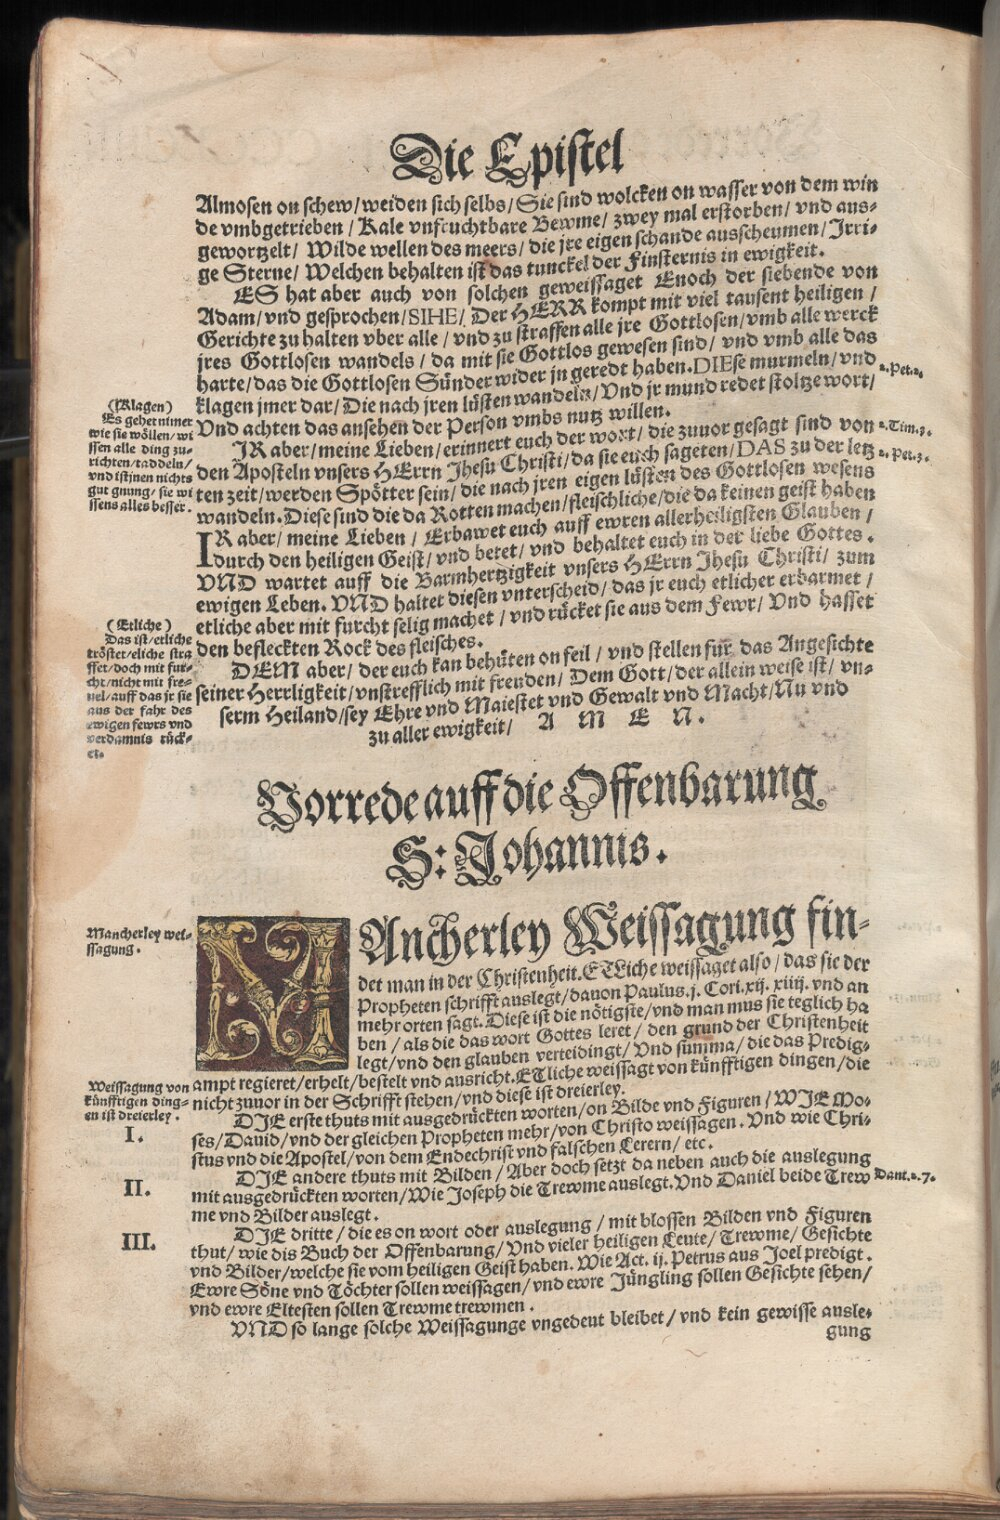 Die Epistel
Almosen on schew/weiden sich selbs/Sie sind wolcken on wasser von dem win
de vmbgetrieben/Kale vnfruchtbare Bewme/zwey mal erstorben/vnd aus-
gewortzelt/Wilde wellen des meers/die jre eigen schande ausscheumen/Irri-
ge Sterne/Welchen behalten ist das tunckel der Finsternis in ewigkeit.
ES hat aber auch von solchen geweissaget Enoch der siebende von
Adam/vnd gesprochen/SIHE/Der HERR kompt mit viel tausent heiligen/
Gerichte zu halten vber alle/vnd zu straffen alle jre Gottlosen/vmb alle werck
jres Gottlosen wandels/da mit sie Gottlos gewesen sind/vnd vmb alle das
harte/das die Gottlosen Sünder wider jn geredt haben.DIEse murmeln/vnd
klagen jmer dar/Die nach jren lüsten wandeln/Vnd jr mund redet stoltze wort/
Vnd achten das ansehen der Person vmbs nutz willen.
IR aber/meine Lieben/erinnert euch der wort/die zuuor gesagt sind von
den Aposteln vnsers HErrn Jhesu Christi/da sie euch sageten/DAS zu der letz
ten zeit/werden Spötter sein/die nach jren eigen lüsten des Gottlosen wesens
wandeln.Diese sind die da Rotten machen/fleischliche/die da keinen geist haben
IR aber/meine Lieben/Erbawet euch auff ewren allerheiligsten Glauben/
durch den heiligen Geist/vnd betet/vnd behaltet euch in der liebe Gottes.
VND wartet auff die Barmhertzigkeit vnsers HErrn Jhesu Christi/zum
ewigen Leben.VND haltet diesen vnterscheid/das jr euch etlicher erbarmet/
etliche aber mit furcht selig machet/vnd rücket sie aus dem Fewr/Vnd hasset
den befleckten Rock des fleisches.
DEM aber/der euch kan behüten on feil/vnd stellen für das Angesichte
seiner Herrligkeit/vnstrefflich mit freuden/Dem Gott/der allein weise ist/vn-
serm Heiland/sey Ehre vnd Maiestet vnd Gewalt vnd Macht/Nu vnd
zu aller ewigkeit/ A M E N.
(Klagen)
Es gehet nimer
wie sie wöllen/wi
ssen alle ding zu-
richten/taddeln/
vnd ist jnen nichts
gut gnung/sie wi
ssens alles besser.
(Etliche)
Das ist/etliche
tröstet/eliche stra
ffet/doch mit fur-
cht/nicht mit fre-
uel/auff das jr sie
aus der fahr des
ewigen fewrs vnd
verdamnis rück-
et.
2.Pet.2.
2.Tim.3.
2.Pet.3.
Vorrede auff die Offenbarung
S: Johannis.
MAncherley Weissagung fin-
det man in der Christenheit.ETLiche weissaget also/das sie der
Propheten schrifft auslegt/dauon Paulus.j.Cori.xij.xiiij.vnd an
mehr orten sagt.Diese ist die nötigste/vnd man mus sie teglich ha
ben/als die das wort Gottes leret/den grund der Christenheit
legt/vnd den glauben verteidingt/Vnd summa/die das Predig-
ampt regieret/erhelt/bestelt vnd ausricht.ETLiche weissagt von künfftigen dingen/die
nicht zuuor in der Schrifft stehen/vnd diese ist dreierley.
DIE erste thuts mit ausgedrückten worten/on Bilde vnd Figuren/WIE Mo-
ses/Dauid/vnd der gleichen Propheten mehr/von Christo weissagen.Vnd wie Chri-
stus vnd die Apostel/von dem Endechrist vnd falschen Lerern/etc.
DIE andere thuts mit Bilden/Aber doch setzt da neben auch die auslegung
mit ausgedrückten worten/Wie Joseph die Trewme auslegt.Vnd Daniel beide Trew
me vnd Bilder auslegt.
DIE dritte/die es on wort oder auslegung/mit blossen Bilden vnd Figuren
thut/wie dis Buch der Offenbarung/Vnd vieler heiligen Leute/Trewme/Gesichte
vnd Bilder/welche sie vom heiligen Geist haben.Wie Act.ij.Petrus aus Joel predigt.
Ewre Söne vnd Töchter sollen weissagen/vnd ewre Jüngling sollen Gesichte sehen/
vnd ewre Eltesten sollen Trewme trewmen.
VND so lange solche Weissagunge vngedeut bleibet/vnd kein gewisse ausle-
gung
Mancherley wei-
ssagung.
Weissagung von
künfftigen ding-
en ist dreierley.
I.
II.
III.
Dani.2.7.